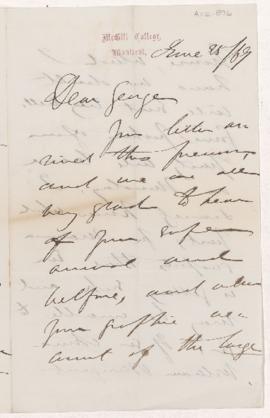 McGill College,
Montreal,
June 28/89
Dear George
Your letter ar
rived this forenoon,
and we are all
very glad to hear
of your safe
arrival and
welfare, and also
your graphic ac
count of the large